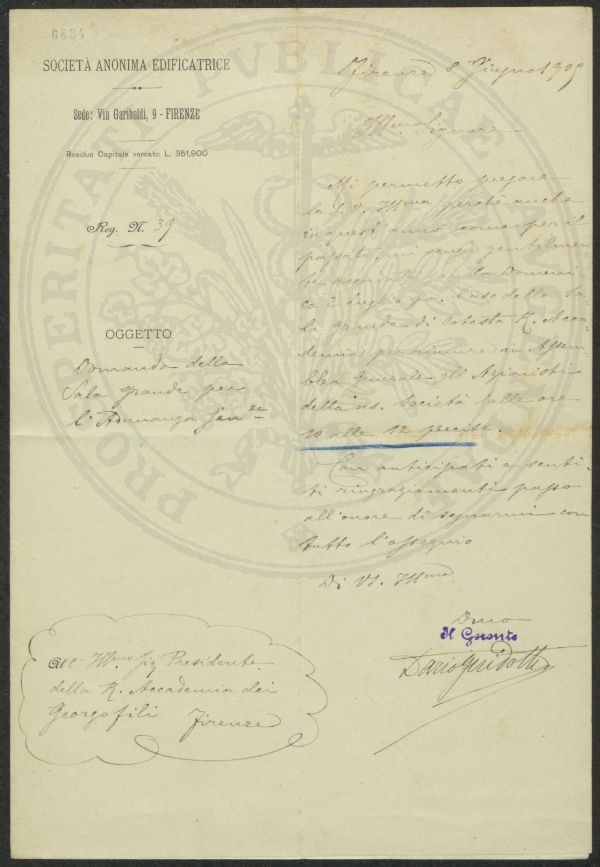 6884
SOCIETÀ ANONIMA EDIFICATRICE
Sede: Via Garibaldi, 9 - FIRENZE
Residuo Capitale versato L. 351,900
Reg. N. 39
OGGETTO
Domanda della
Sala grande per
l'Adunanza Gen.le
Firenze 8 Giugno 1905
Ill.mo Signore
Mi permetto pregare
la S. V. Ill.ma perchè anche
in quest'anno come per il
passato, mi venga gentilmen-
te accordato per la Domeni-
ca 2 Luglio pv. l'uso della Sa-
la grande di cotesta R. Acca-
demia per riunire in Assem-
blea Generale gli Azionisti
della ns. Società dalle ore
10 alle 12 precise.
Con anticipati e senti-
ti ringraziamenti passo
all'onore di segnarmi con
tutto l'ossequio
Di VS. Ill.ma
Dmo
Il Gerente
Dario Guidotti
All' Ill.mo Sig Presidente
della R. Accademia dei
Georgofili Firenze
PROSPERITATI PVBLICAE